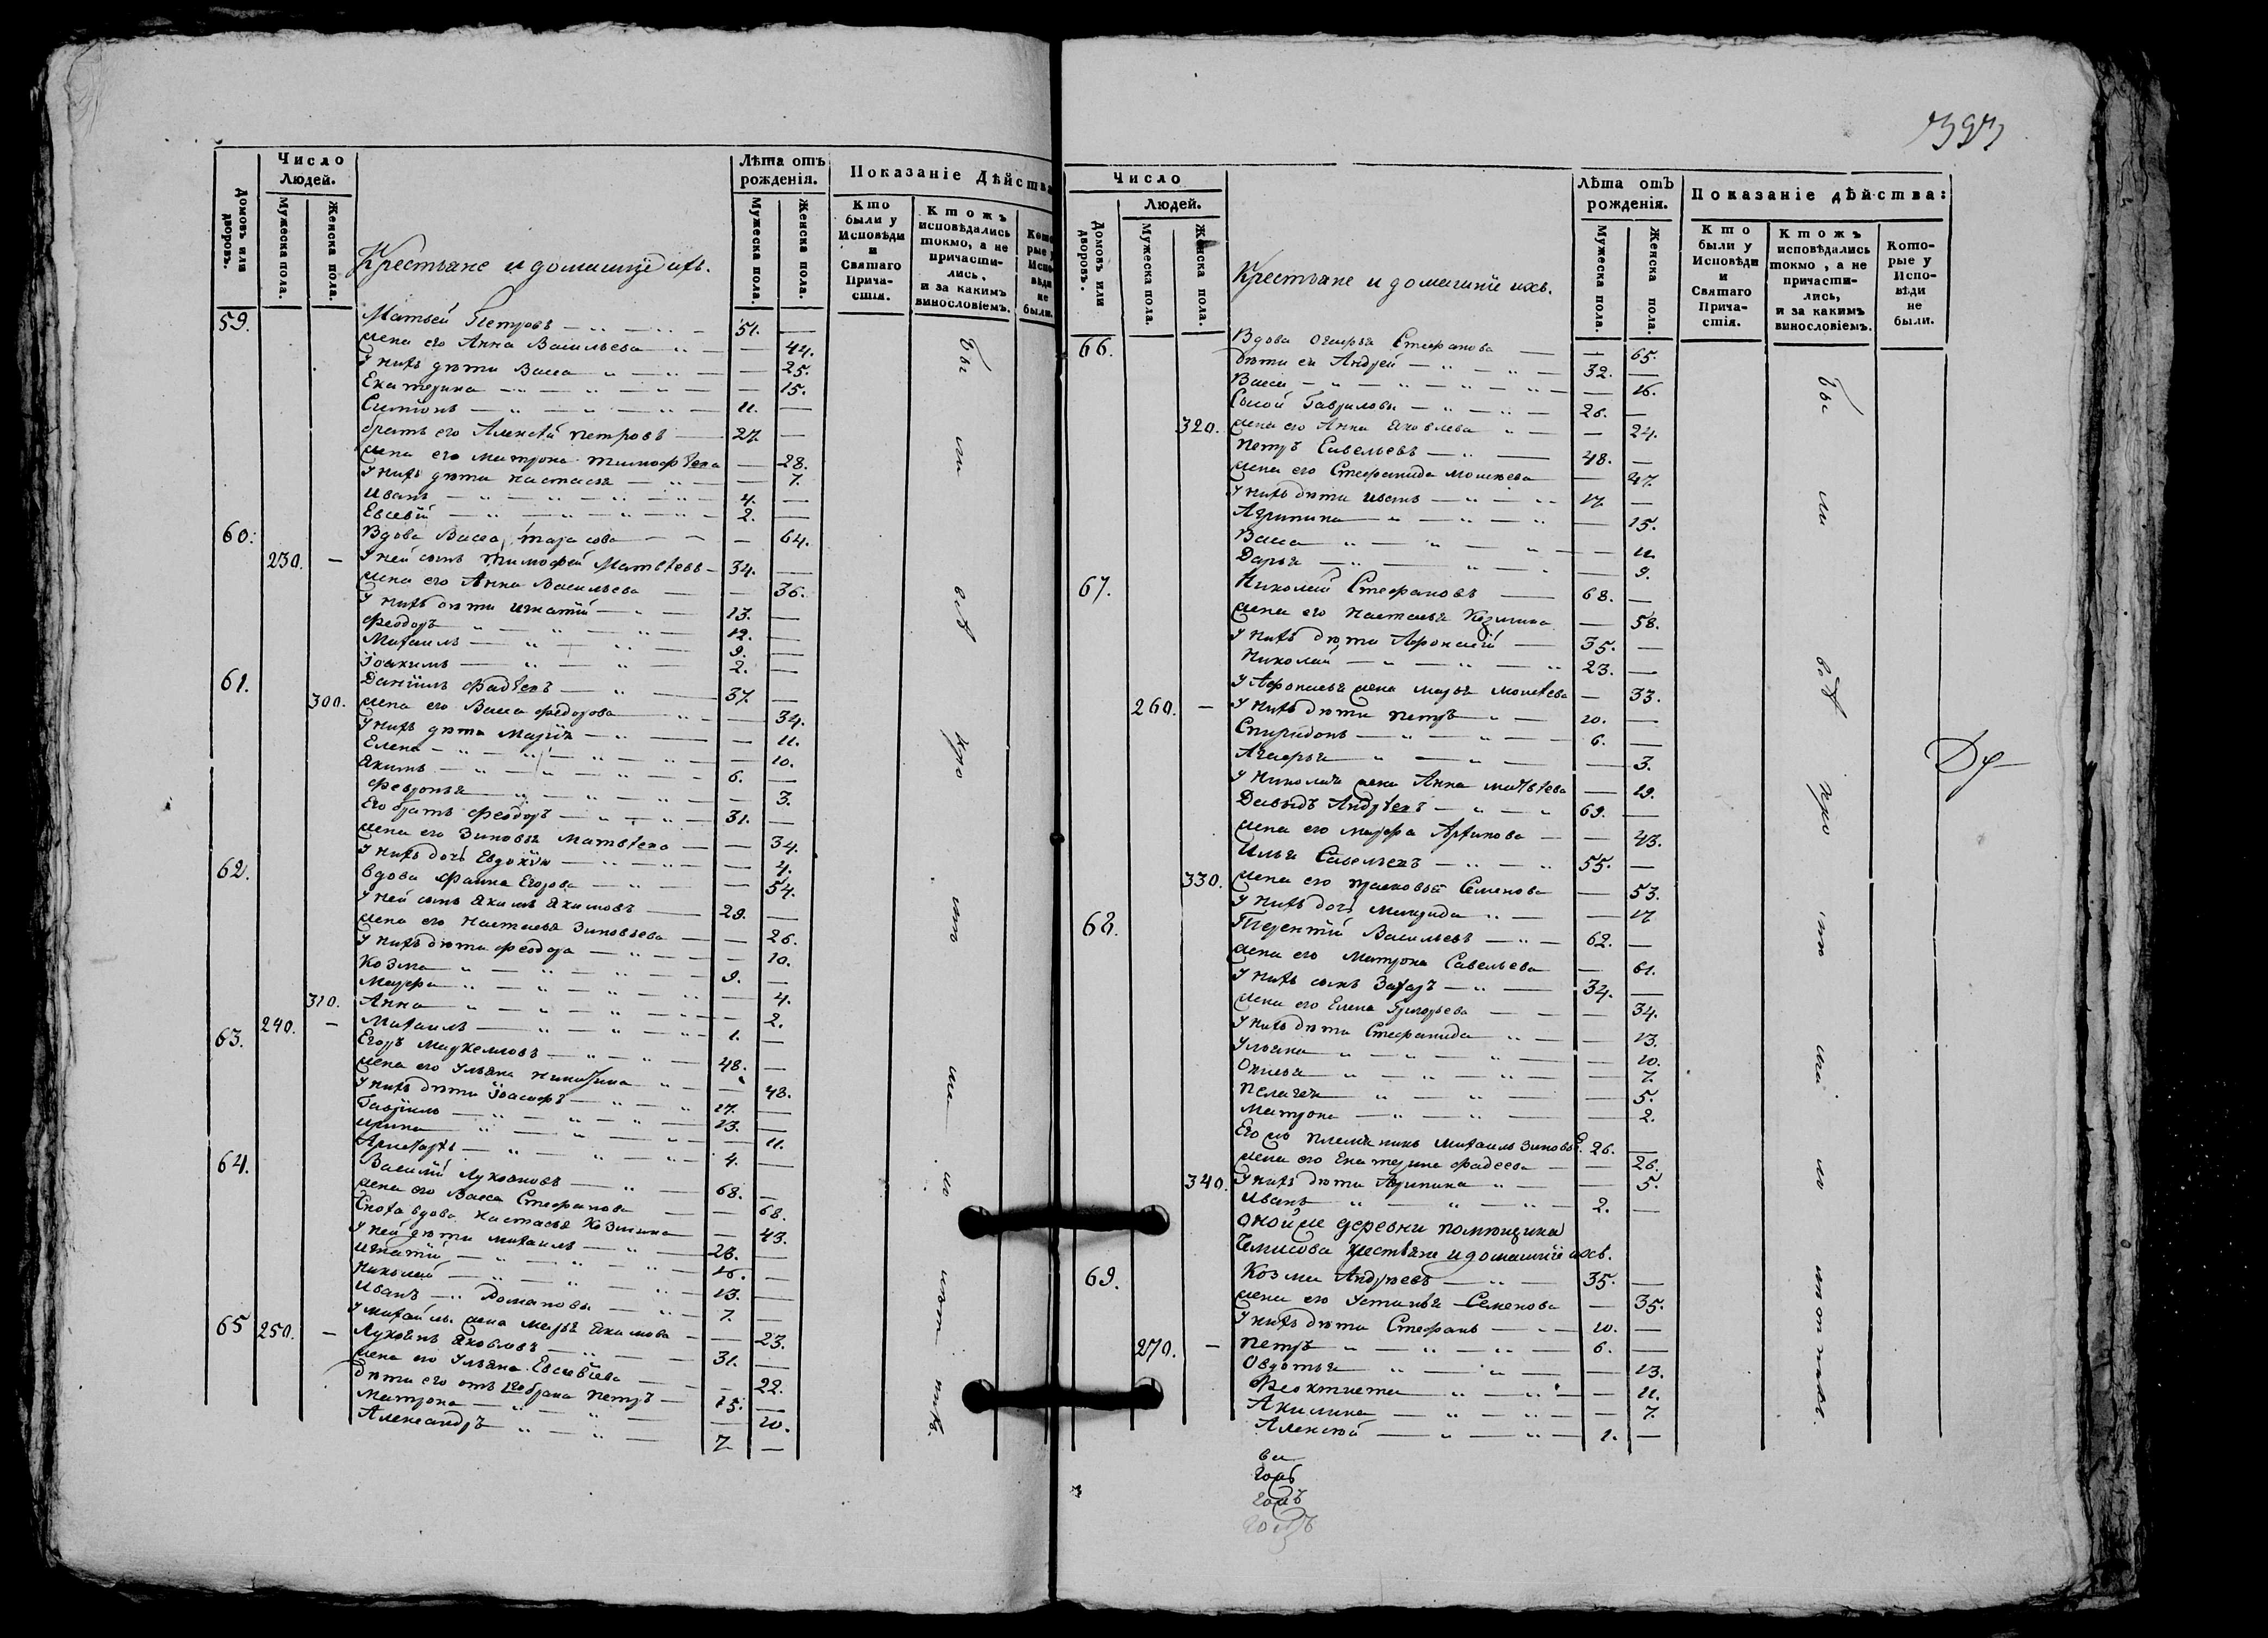 Домовъ или дворовъ.
Число Людей.
Мужеска пола.
Женска пола.
Крестьяне и домашніе ихъ.
Лѣта отъ рожденія.
Мужеска пола.
Женска пола.
Показаніе Дѣйства
Кто были у Исповѣди и Святаго Прича-стія.
Ктожъ исповѣдались токмо, а не причасти-лись, и за какимъ винословіемъ.
59. Матвей Петровъ 51.
жена его Анна Васильева 44.
У нихъ дѣти Васса 25.
Екатерина 15.
Симіонъ 11.
братъ его Алексѣй петровъ 27.
жена его матрона тимофѣева 28.
У нихъ дѣти настасья 7.
иванъ 4.
Евсевій 2.
60. Вдова Васса тарасова 64.
230. У ней сынъ тимофей Матвѣевъ 34.
жена его Анна Васильева 36.
У нихъ дѣти игнатій 13.
феодоръ 12.
Михаилъ 9.
Іоакимъ 2.
61. Даніилъ фадѣевъ 37.
300. жена его Васса федорова 34.
У нихъ дѣти Марія 11.
Елена 10.
Якимъ 6.
февронья 3.
Его братъ феодоръ 31.
жена его Зиновья Матвѣева 34.
У нихъ дочь Евдокія 4.
62. вдова фаина Егорова 54.
У ней сынъ Якимъ Якимовъ 29.
жена его настасья Зиновьева 26.
У нихъ дѣти феодора 10.
Козма 9.
Марфа 4.
310. Анна 2.
240. Михаилъ 1.
63. Егоръ Маркелловъ 48.
жена его Ульяна никитина 48.
У нихъ дѣти Іоасафъ 17.
Гавріилъ 13.
ирина 11.
Аристархъ 4.
64. Василій Лукьяновъ 68.
жена его Васса Стефанова 68.
Сноха вдова настасья Козмина 43.
У ней дѣти михаилъ 23.
игнатій 16.
николай 13.
иванъ Романовы 7.
У михайлы жена марья Якимова 23.
65 250. Лукьянъ Яковлевъ 31.
жена его Ульяна Евсевіева 22.
дѣти его отъ 1го брака петръ 15.
Матрона 10.
Александръ 7
Бы ли всѣ кро мѣ
Число
Домовъ или дворовъ.
Людей.
Мужеска пола.
Женска пола.
Крестьяне и домашніе ихъ.
Лѣта отъ рожденія.
Мужеска пола.
Женска пола.
Показаніе дѣйства:
Кто были у Исповѣди и Святаго Прича-стія.
Ктожъ исповѣдались токмо, а не причасти-лись, и за какимъ винословіемъ.
Кото-рые у Испо-вѣди не были.
66. Вдова Стефанова 65.
дѣти ея Андрей 32.
Васса 16.
Сысой Гавриловы 26.
320. жена его Анна Яковлева 24.
петръ Савельевъ 48.
жена его Стефанида моисеева 47.
У нихъ дѣти иванъ 17.
Агрипина 15.
Васса 11.
Дарья 9.
67. Николай Стефановъ 68.
жена его настасья Козмина 58.
У нихъ дѣти Афонасій 35.
николай 23.
У Афонасья жена марья моисѣева 33.
260. У нихъ дѣти петръ 10.
Спиридонъ 6.
3.
У николая жена Анна матвѣева 19.
Давыдъ Андрѣевъ 69.
жена его марфа 43.
Илья Савельевъ 55.
330. жена его Семенова 53.
У нихъ дочь 17
68. Терентій Васильевъ 62.
жена его матрона Савельева 61.
У нихъ сынъ Захаръ 34.
жена его Елена Григорьева 34.
У нихъ дѣти Стефанида 13.
Ульяна 10.
7.
пелагея 5.
матрона 2.
Его племянникъ михаилъ 26.
жена его Екатерина фадеева 26.
340. У нихъ дѣти Агрипина 5.
иванъ 2.
оной же деревни помѣщика
крестьяне и домашніе ихъ.
69. Козма Андреевъ 35.
жена его Устинья Семенова 35.
У нихъ дѣти Стефанъ 10.
270. петръ 6.
Овдотья 13.
Феоктиста 11.
Акилина 7.
Алексей 1.
Бы ли всѣ кро